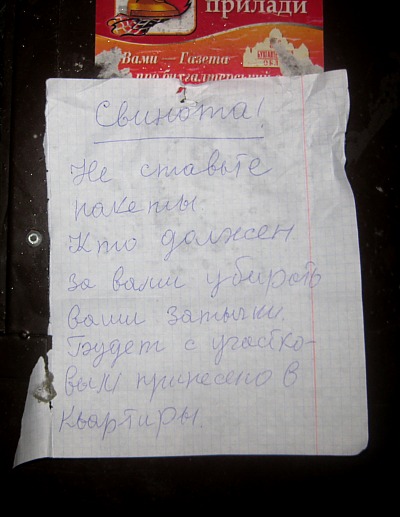 прилади
Вами — Газета
про бухгалтерський
Свинота!
Не ставьте
пакеты.
Кто должен
за вами убирать
ваши затычки.
Будет с участко-
вым принесено в
квартиры.